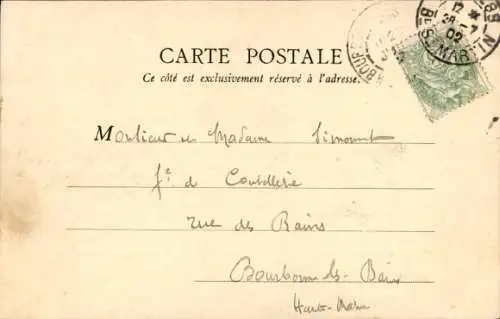 CARTE POSTALE
Ce côté est exclusivement réservé à l'adresse.
Monsieur et Madame Simonnet
fᵗ de Coutellerie
rue des Bains
Bourbonne-les-Bains
Haute-Marne
12
28-7
02
Bᴱˢ MAR